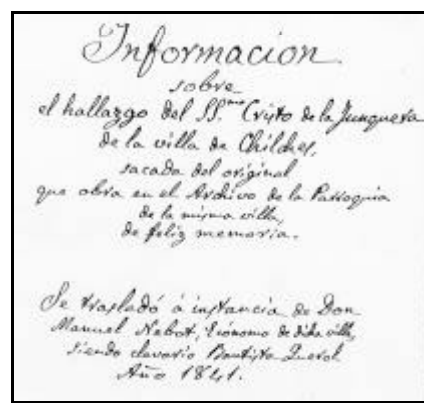 Informacion
sobre
el hallazgo del SS.mo Cristo de la Junquera
de la villa de Chilches,
sacada del original
que obra en el Archivo de la Parroquia
de la misma villa,
de feliz memoria.
Se trasladó á instancia de Don
Manuel Nebot, Ecónomo de dicha villa,
siendo clavario Bautista Querol
Año 1841.